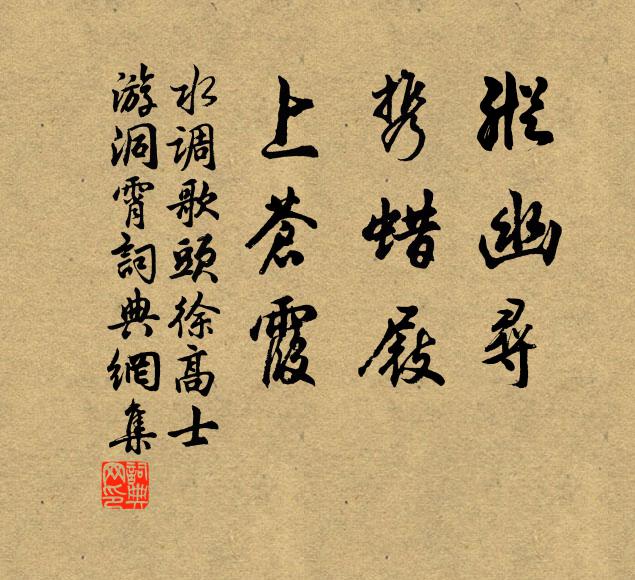 縱幽尋
携蜡屐
上蒼霞
水調歌頭徐高士
游洞霄詞典網集
詞典网印